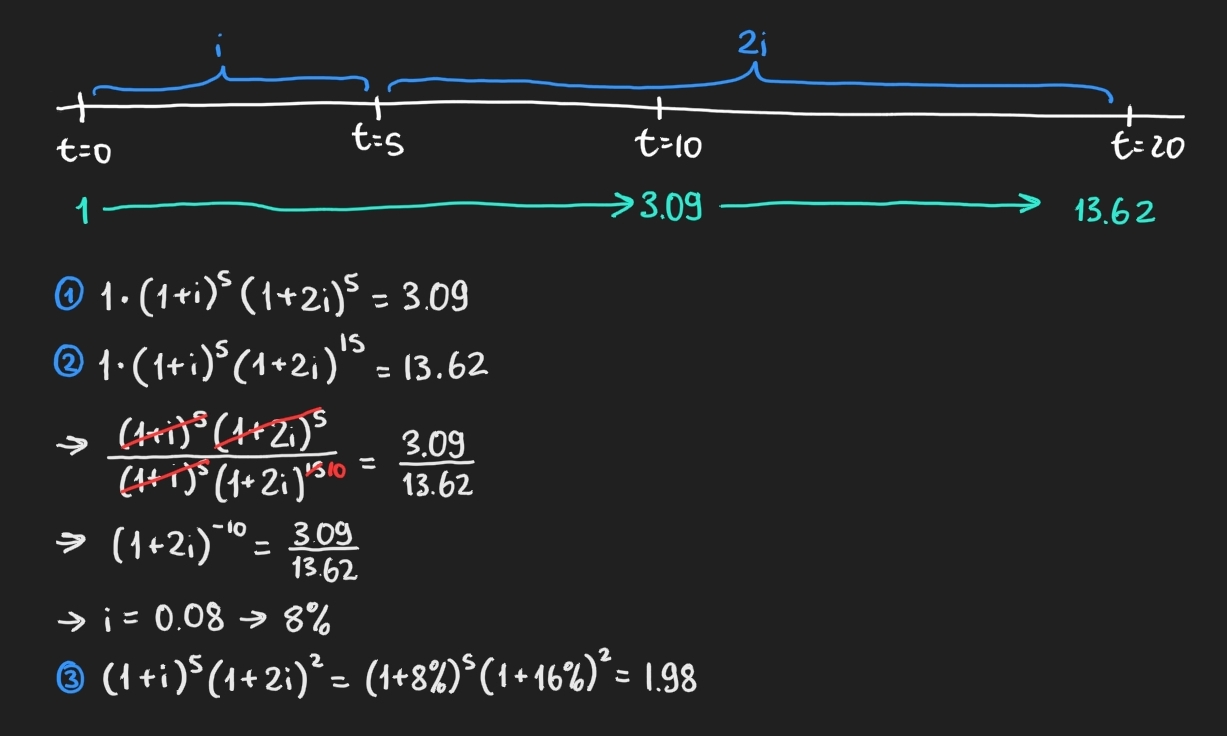 i 2i
t=0 t=5 t=10 t=20
1 → 3.09 → 13.62
① 1·(1+i)⁵(1+2i)⁵ = 3.09
② 1·(1+i)⁵(1+2i)¹⁵ = 13.62
→ (1+i)⁵(1+2i)⁵ / (1+i)⁵(1+2i)¹⁵ 10 = 3.09 / 13.62
→ (1+2i)⁻¹⁰ = 3.09 / 13.62
→ i = 0.08 → 8%
③ (1+i)⁵(1+2i)² = (1+8%)⁵(1+16%)² = 1.98